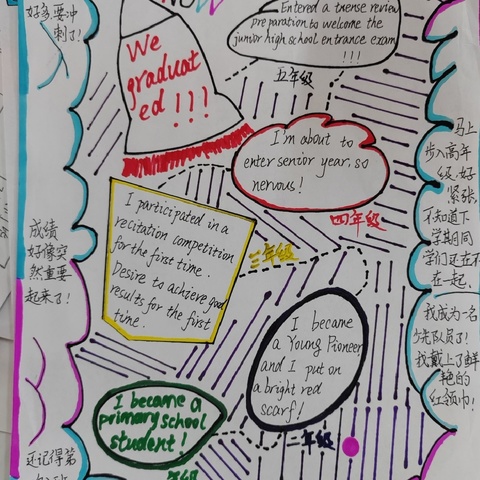 好多,要冲
刺了!
Now
We
graduat
ed!!!
Entered a tnense review
preparation to welcome the
junior high school entrance exam
!!!
五年级
I'm about to
enter senior year, so
nervous!
四年级
马上
步入高年
级,好
紧张,
不知道下
学期同
学们还在不
在一起.
I participated in a
recitation competition
for the first time.
Desire to achieve good
results for the first
time.
三年级
成绩
好像突
然重要
起来了!
I became
a Young Pioneer
and I put on
a bright red
scarf!
二年级
我成为一名
少先队员了!
我戴上了鲜
艳的
红领巾!
I became a
primary school
student!
年级
还记得第